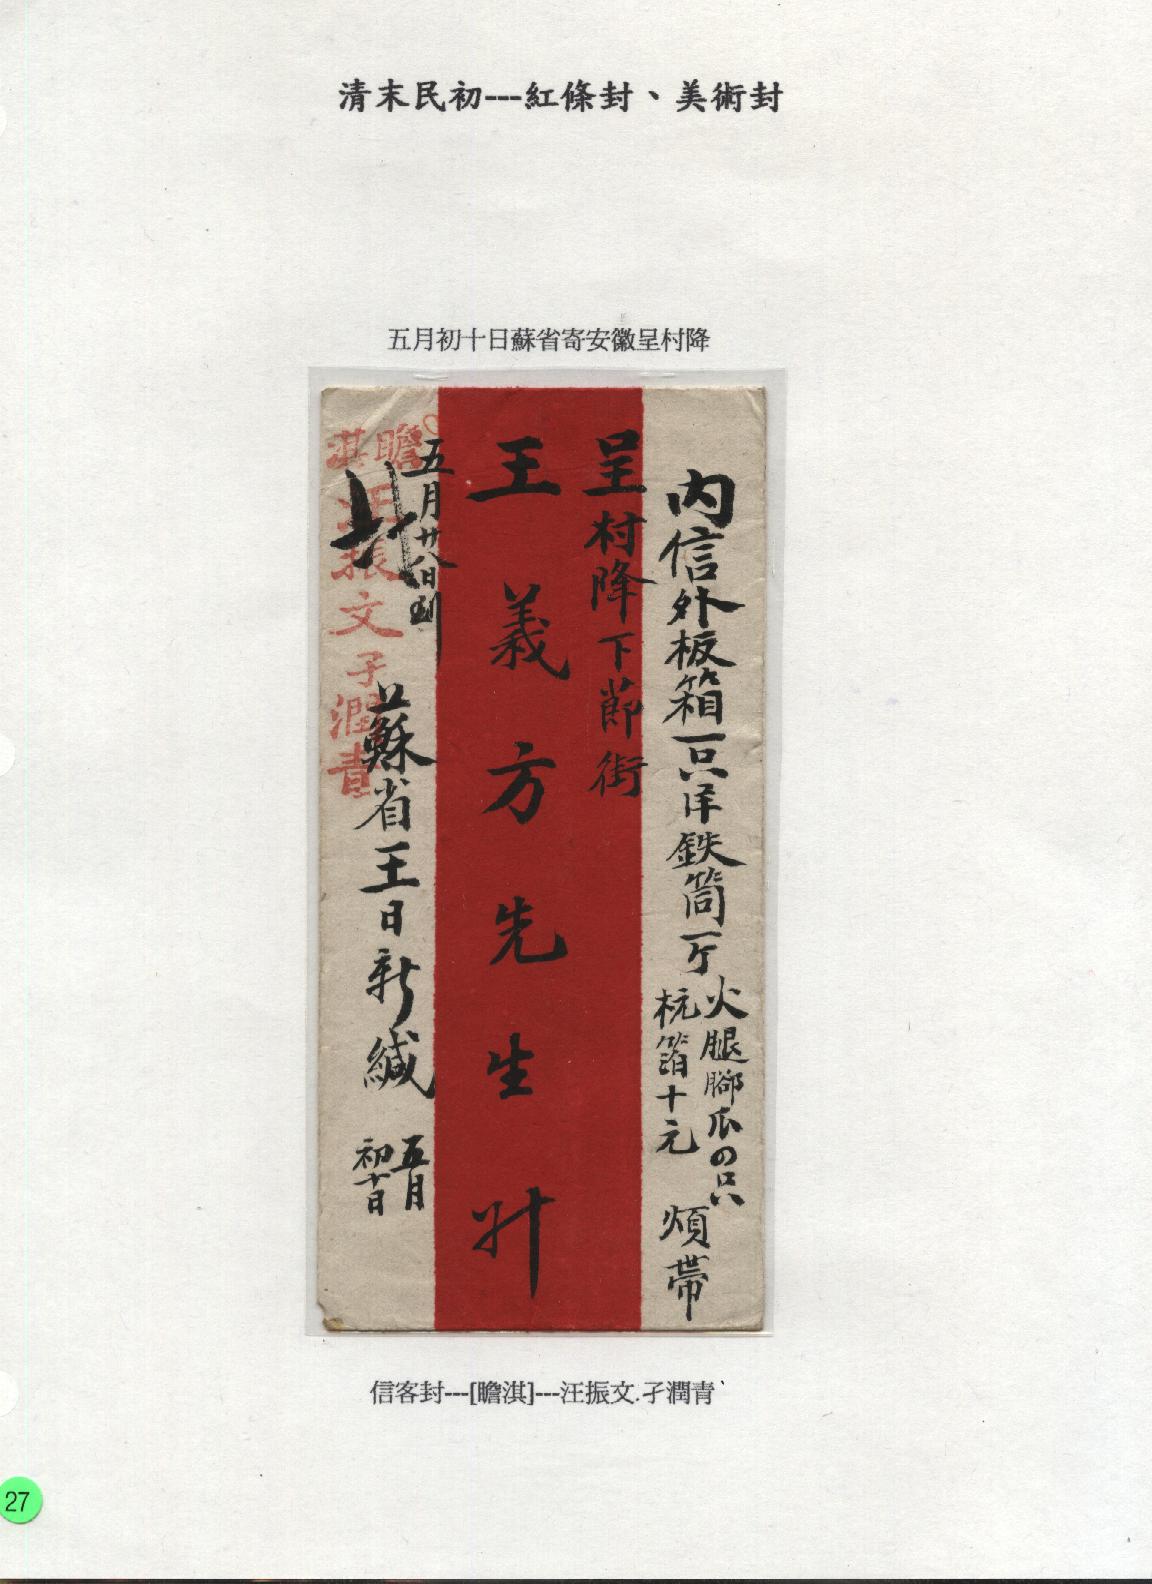 清末民初---紅條封、美術封
五月初十日蘇省寄安徽呈村降
內信外板箱一只洋鉄筒一个
火腿腳爪の只
杭箔十元
煩帶
呈村降下節街
王義方先生升
五月廿八日到
蘇省王日新緘
五月
初十日
瞻淇
汪振文子潤青
信客封---[瞻淇]---汪振文.子潤青
27